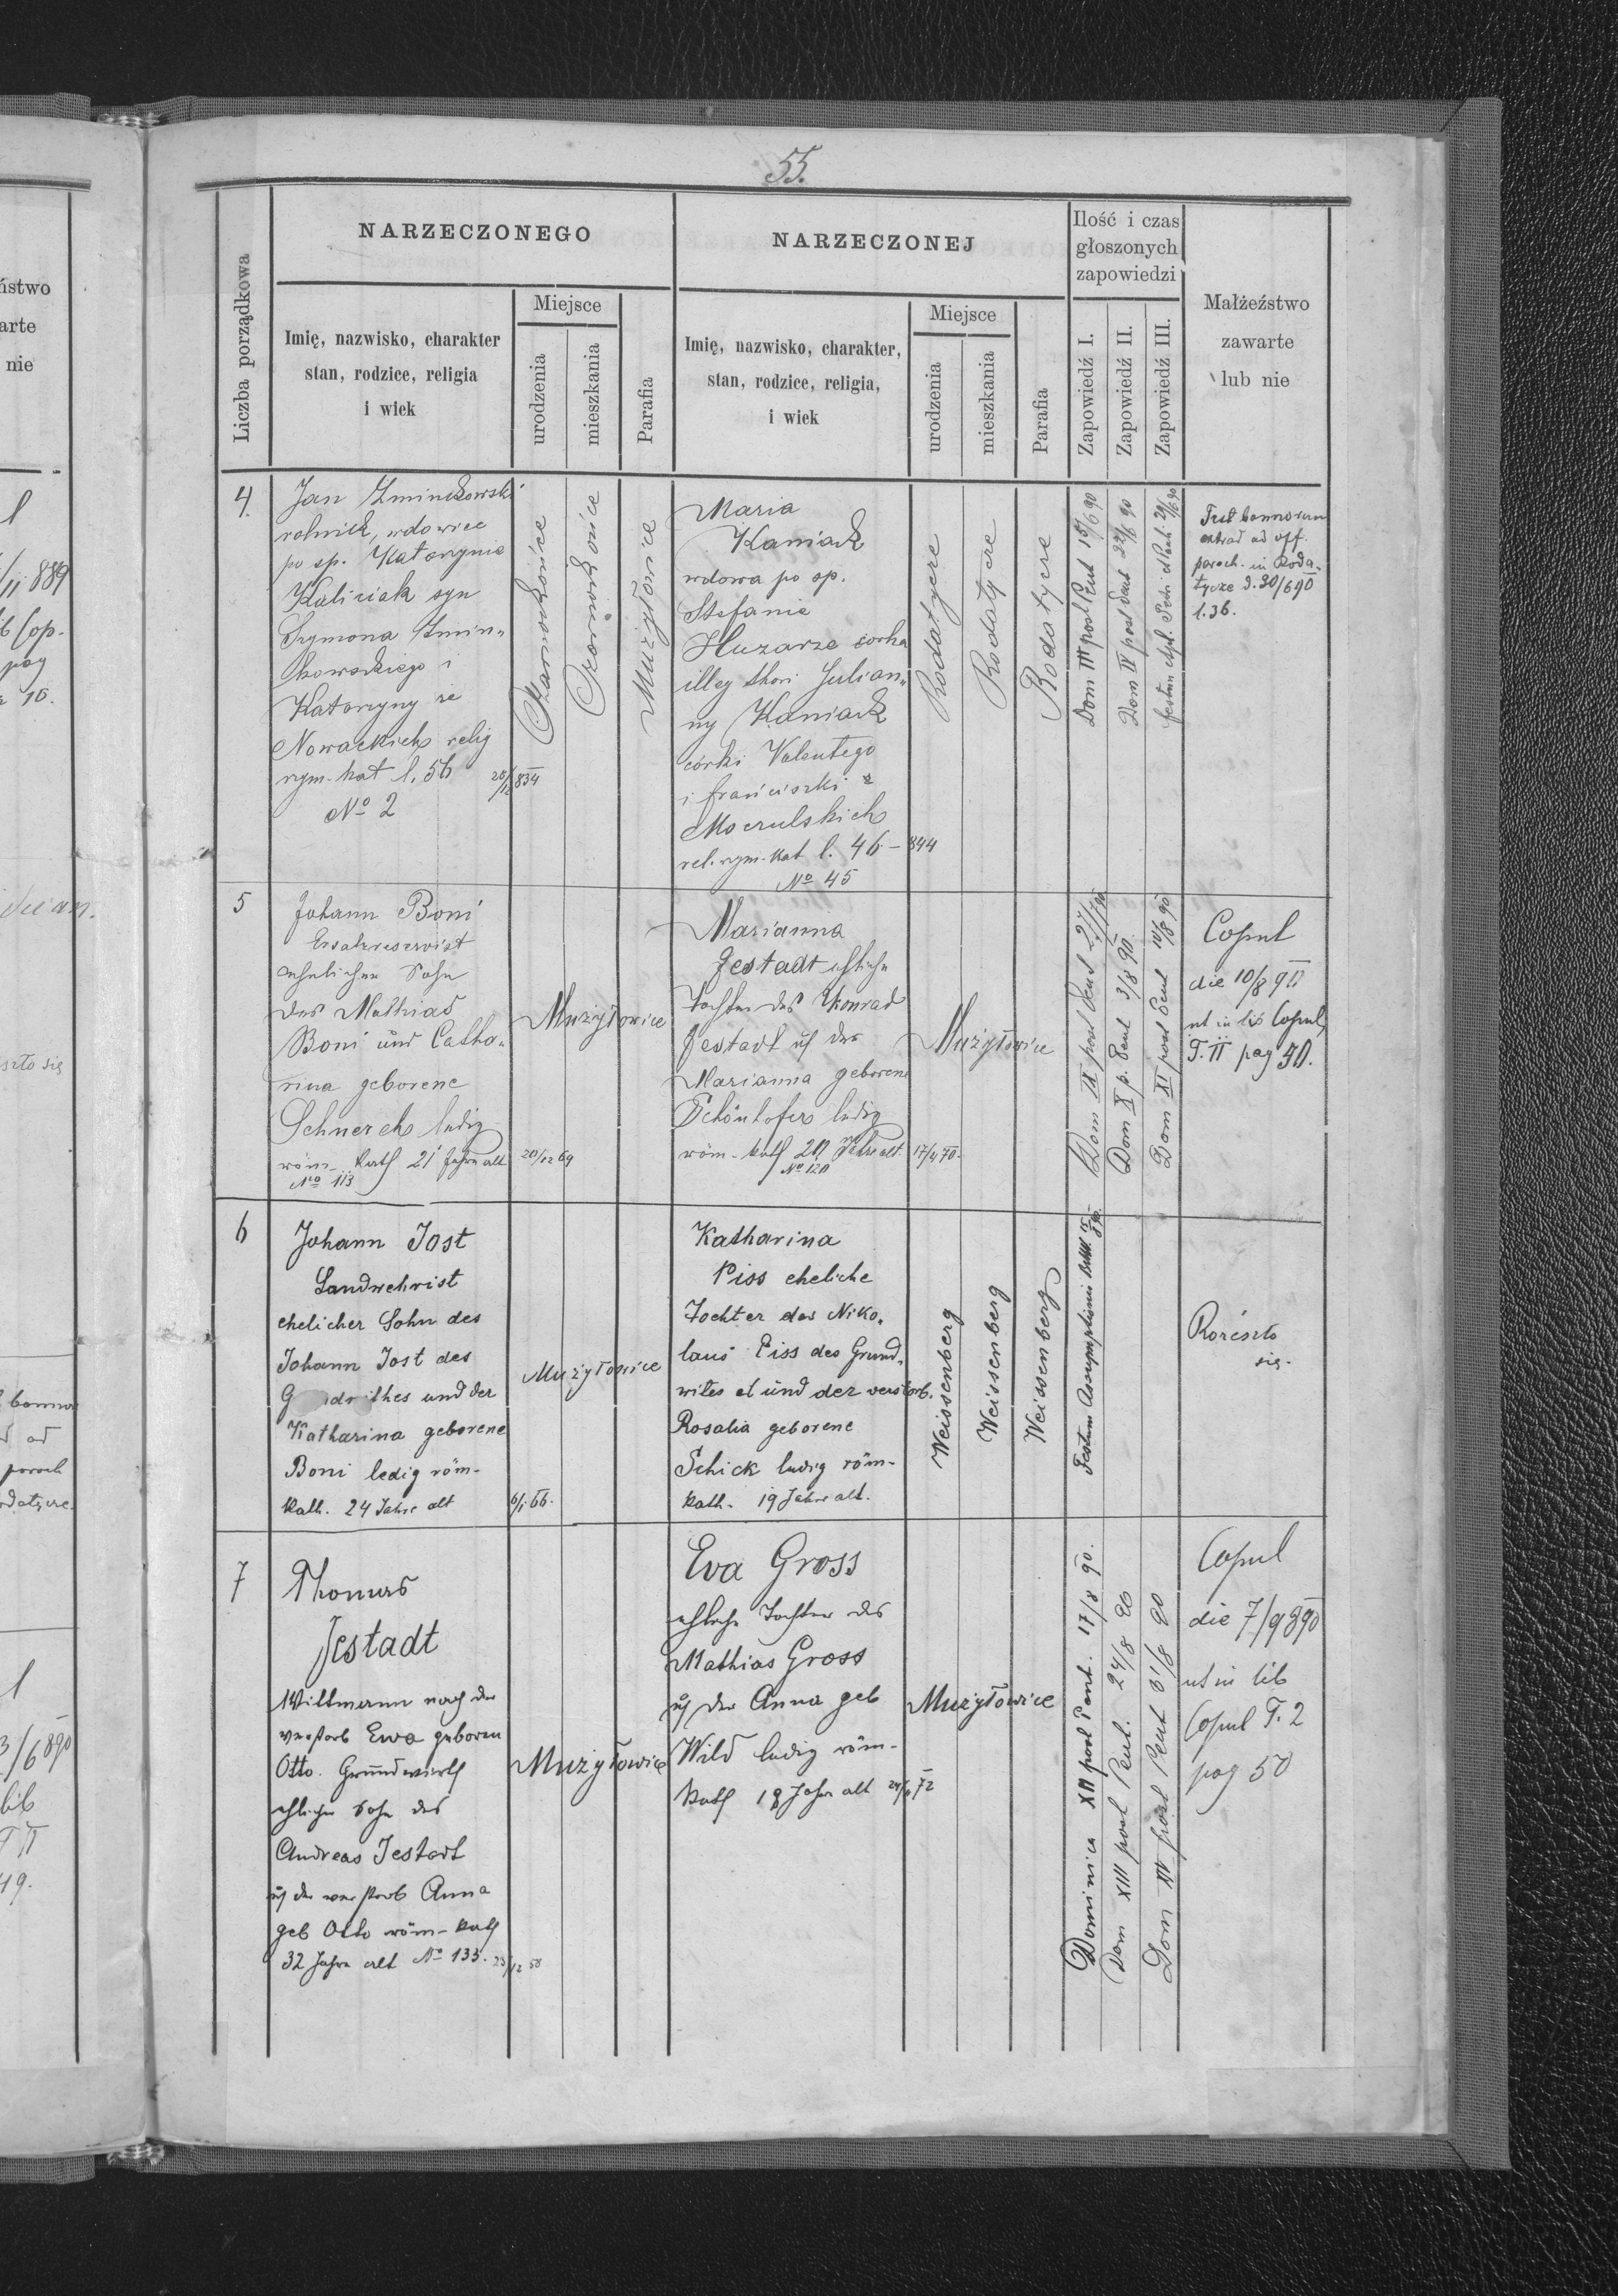 55.
NARZECZONEGO
NARZECZONEJ
Ilość i czas
głoszonych
zapowiedzi
Małżeństwo
zawarte
lub nie
Liczba porządkowa
Imię, nazwisko, charakter
stan, rodzice, religia
i wiek
Miejsce
urodzenia
mieszkania
Parafia
Imię, nazwisko, charakter,
stan, rodzice, religia,
i wiek
Miejsce
urodzenia
mieszkania
Parafia
Zapowiedź I.
Zapowiedź II.
Zapowiedź III.
4.
Jan Żminkowski
rolnik, wdowiec
po sp. Katarzynie
Kaliciak syn
Szymona Żmin„
kowskiego i
Katarzyny ze
Nowackich relig
rzym-kat l. 56 20/12 834
No 2
Czarnokońce
Czarnokońce
Mużyłowice
Maria
Kaniak
wdowa po sp.
Stefanie
Huzarze córka
illeg thori Julian„
ny Kaniak
córki Valentego
i franciszki z
Moczulskich
rel. rzym-kat l. 46 - 844
No 45
Rodatycze
Rodatycze
Rodatycze
Dom III post Pent 15/6 90
Dom IV post Pent 22/6 90
festum Apl. Petri et Pauli 29/6 90
Test bannorum
extrad ad off.
paroch. in Roda„
tycze d. 30/6 90
l. 36.
5
Johann Boni
Ersatzreservist
ehelicher Sohn
des Mathias
Boni und Catha„
rina geborene
Schnerch ledig
röm-kath 21 Jahre alt 20/12 69
No 113
Mużyłowice
Marianna
Jestadt eheliche
Tochter des Konrad
Jestadt u der
Marianna geborene
Schönhofer ledig
röm-kath 20 Jahre alt 17/4 70.
No 120
Mużyłowice
Dom IX post Pent 27/7 90
Dom X p. Pent 3/8 90.
Dom XI post Pent 10/8 90
Copul
die 10/8 90
ut in lib Copul
T. II pag 50.
6
Johann Jost
Landwehrist
ehelicher Sohn des
Johann Jost des
G ndwithes und der
Katharina geborene
Boni ledig röm-
kath. 24 Jahre alt 6/1. 66.
Mużyłowice
Katharina
Piss eheliche
Tochter des Niko„
laus Piss des Grund„
wites et und der verstorb.
Rosalia geborene
Schick ledig röm-
kath. 19 Jahre alt.
Weissenberg
Weissenberg
Weissenberg
Festum Assumptionis BMV. 15/8 90.
Rozeszło
się.
7
Thomas
Jestadt
Wittmann nach der
verstorb Ewa geboren
Otto. Grundwirth
ehlicher Sohn des
Andreas Jestadt
u der verstorb Anna
geb Otto röm-kath
32 Jahre alt No 133. 23/12 58
Mużyłowice
Eva Gross
ehliche Tochter des
Mathias Gross
u der Anna geb
Wild ledig röm-
kath 18 Jahre alt 72
Mużyłowice
Dominica XII post Pent. 17/8 90.
Dom XIII post Pent. 24/8 90
Dom XIV post Pent 31/8 90
Copul
die 7/9 890
ut in lib
Copul T. 2
pag 50